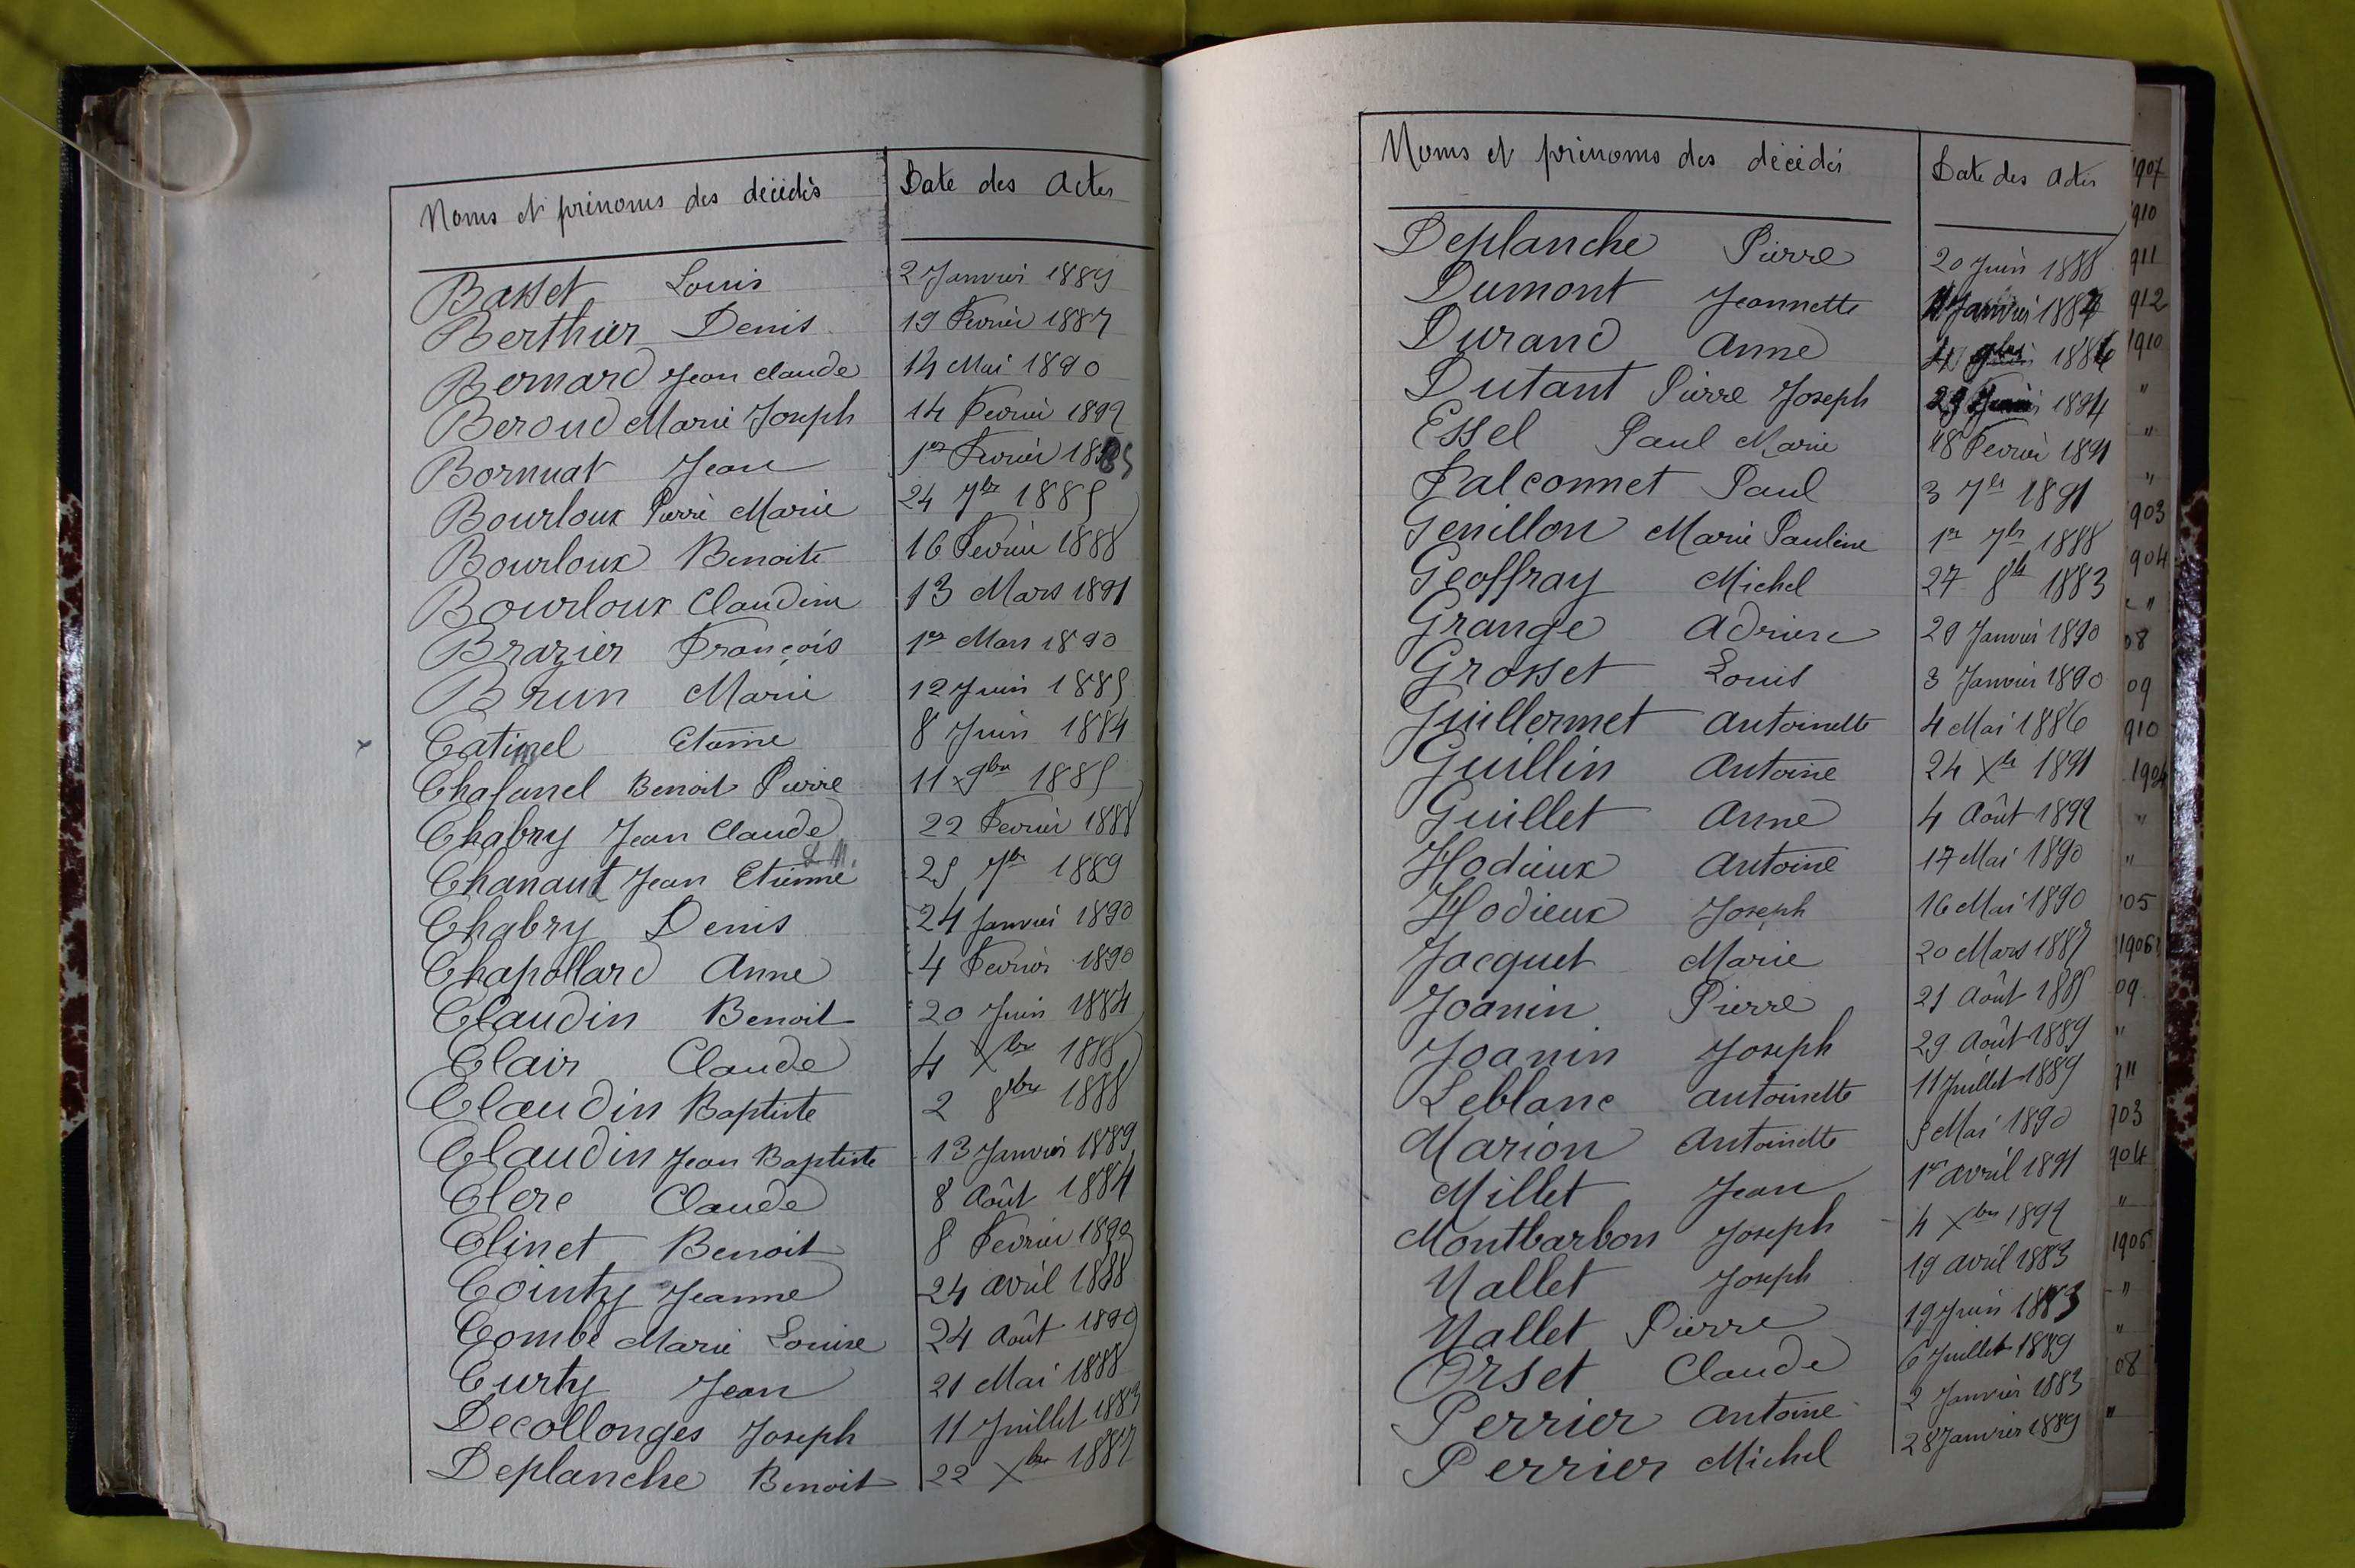 Noms et prénoms des décédés Date des Actes
Basset Louis 2 Janvier 1889
Berthier Denis 19 Fevrier 1887
Bernard Jean Claude 14 Mai 1890
Beroud Marie Joseph 14 Fevrier 1892
Bornuat Jean 1er Fevrier
Bourloux Pierre Marie 24 7bre 1885
Bourloux Benoite 16 Fevrier 1888
Bourloux Claudine 13 Mars 1891
Brazier François 1er Mars 1890
Brun Marie 12 Juin 1885
Catinel 8 Juin 1884
Chafanel Benoit Pierre 11 9bre 1885
Chabry Jean Claude 22 Fevrier 1888
Chanaut Jean Etienne 25 7bre 1889
Chabry Denis 24 Janvier 1890
Chapollard Anne 4 Fevrier 1890
Claudin Benoit 20 Juin 1884
Clair Claude 4 Xbre 1888
Claudin Baptiste 2 8bre 1888
Claudin Jean Baptiste 13 Janvier 1889
Clerc Claude 8 Août 1884
Clinet Benoit 8 Fevrier 1890
Cointy Jeanne 24 avril 1888
Combe Marie Louise 24 Août 1890
Curty Jean 21 Mai 1888
Decollonges Joseph 11 Juillet 1883
Deplanche Benoit 22 Xbre 1887
Noms et prénoms des décédés Date des Actes
Deplanche Pierre 20 Juin 1888
Dumont Jeannette Janvier
Durand Anne 1886
Dutant Pierre Joseph 1894
Essel Paul Marie 18 Fevrier 1891
Falconnet Paul 3 7bre 1891
Genillon Marie Pauline 1er 7bre 1888
Geoffray Michel 27 8bre 1883
Grange Adrien 29 Janvier 1890
Grosset Louis 3 Janvier 1890
Guillermet Antoinette 4 Mai 1886
Guillin Antoine 24 Xbre 1891
Guillet Anne 4 Août 1892
Hodieux Antoine 17 Mai 1890
Hodieux Joseph 16 Mai 1890
Jacquet Marie 20 Mars 1887
Joanin Pierre 21 Août 1885
Joanin Joseph 29 Août 1889
Leblanc Antoinette 11 Juillet 1889
Marion Antoinette 5 Mai 1890
Millet Jean 1er avril 1891
Montbarbon Joseph 4 Xbre 1892
Nallet Joseph 19 avril 1883
Nallet Pierre 19 Juin 1883
Orset Claude 6 Juillet 1889
Perrier Antoine 2 Janvier 1883
Perrier Michel 28 Janvier 1889
1907
910
911
912
1910
"
"
"
903
904
"
08
09
910
1904
"
"
05
1906
09
"
911
903
904
"
1906
"
"
08
"